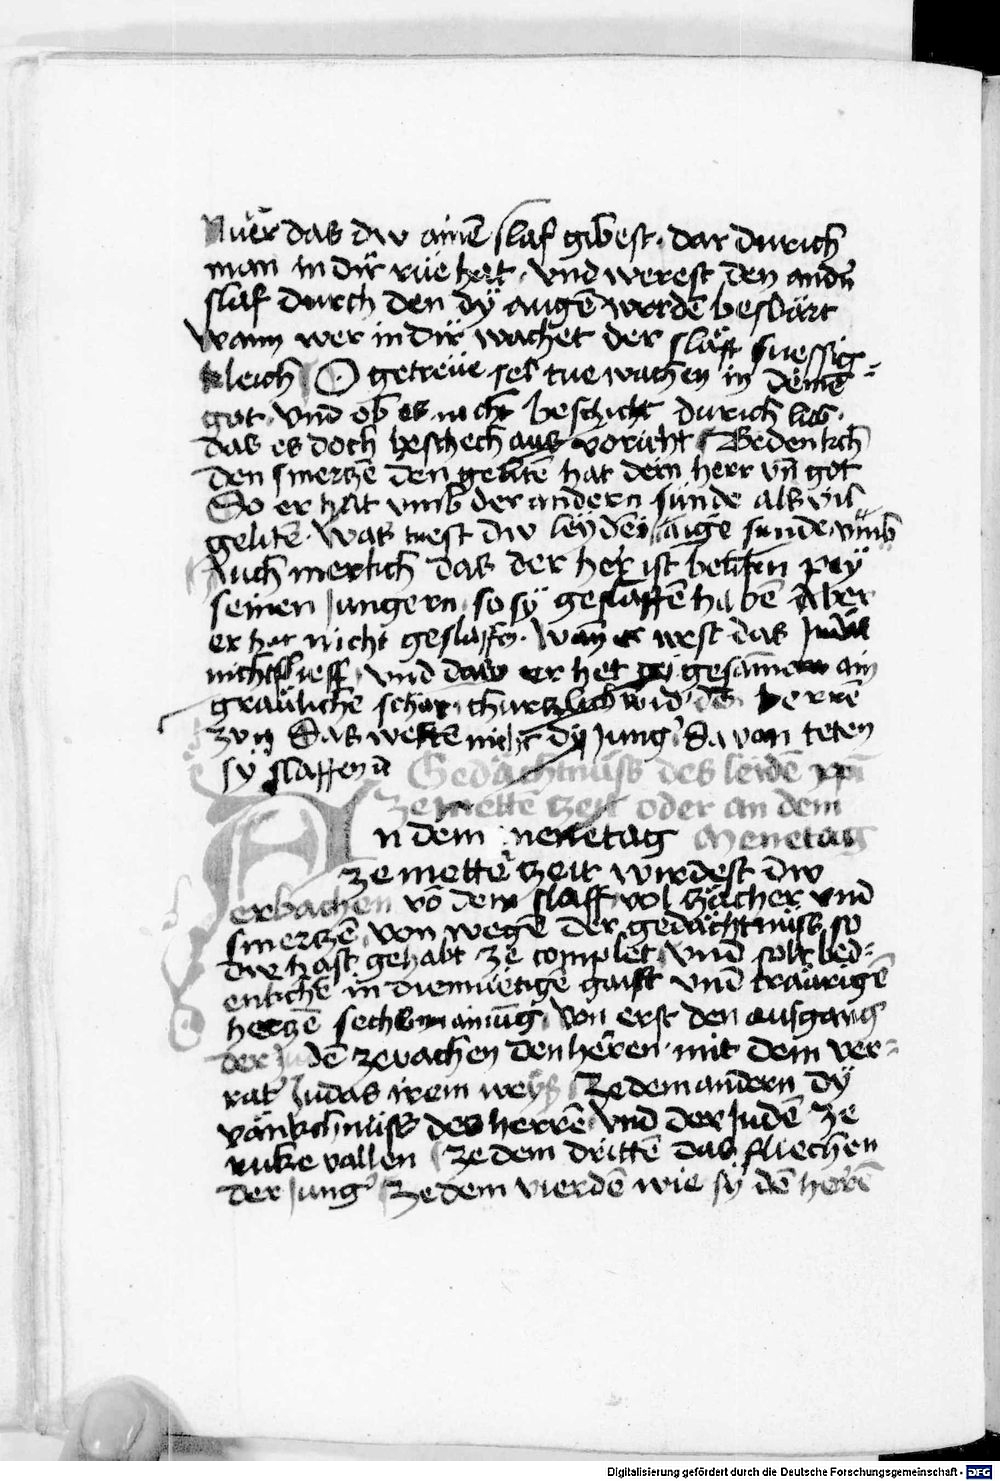 Nuer das dw ainē slaf gibest · dar durich
man in dir rüe hat · vnd werest den andn̄
slaf durch den dÿ augē werdē beswärt
wann wer in dir wachet der släfft suessig=
kleich O getrëue sel tue wachen in deinē
got · vnd ob es nicht beschicht durich lieb ·
das es doch beschech aus voricht Bedenkch
den smerczē den gelitē hat dein herr vn̄ got
So er hat vmb der andern sünde als vil
gelitē · Was tuest dw leyden aigē sunde vmb
Auch merkch das der her ist belibm pey
seinen Jungern so sÿ geslaffē habē Aber
er hat nicht geslaffn · Wan̄ er west das Judas
nicht slieff vnd das er het gesamēt ain
gräuliche schar churczlich wid' dē herrē
zum Das westē nicht dÿ Jung' Da von teten
sÿ slaffen
Gedächtnüss des leidē xpī
ze mettē zeit oder an dem
An dem menetag Menetag
ze mettē zeit wirdest dw
erbachen vō dem slaff vol zächer vnd
smerczē von wegē der gedächtnüss so
dw hast gehabt ze complet vnd solt bed=
enkchē in diemüetigē gaist vnd träwrigē
herczē sechs mainūg Von erst den ausgang
der Judē ze vachen den herren · mit dem ver=
rat' Judas irem weys Ze dem andern dÿ
vänkchnüss des herrē vnd der Judē ze
ruke vallen Ze dem drittē das fliechen
der Jung' Ze dem vierdē wie sÿ dē herrē
Digitalisierung gefördert durch die Deutsche Forschungsgemeinschaft - DFG